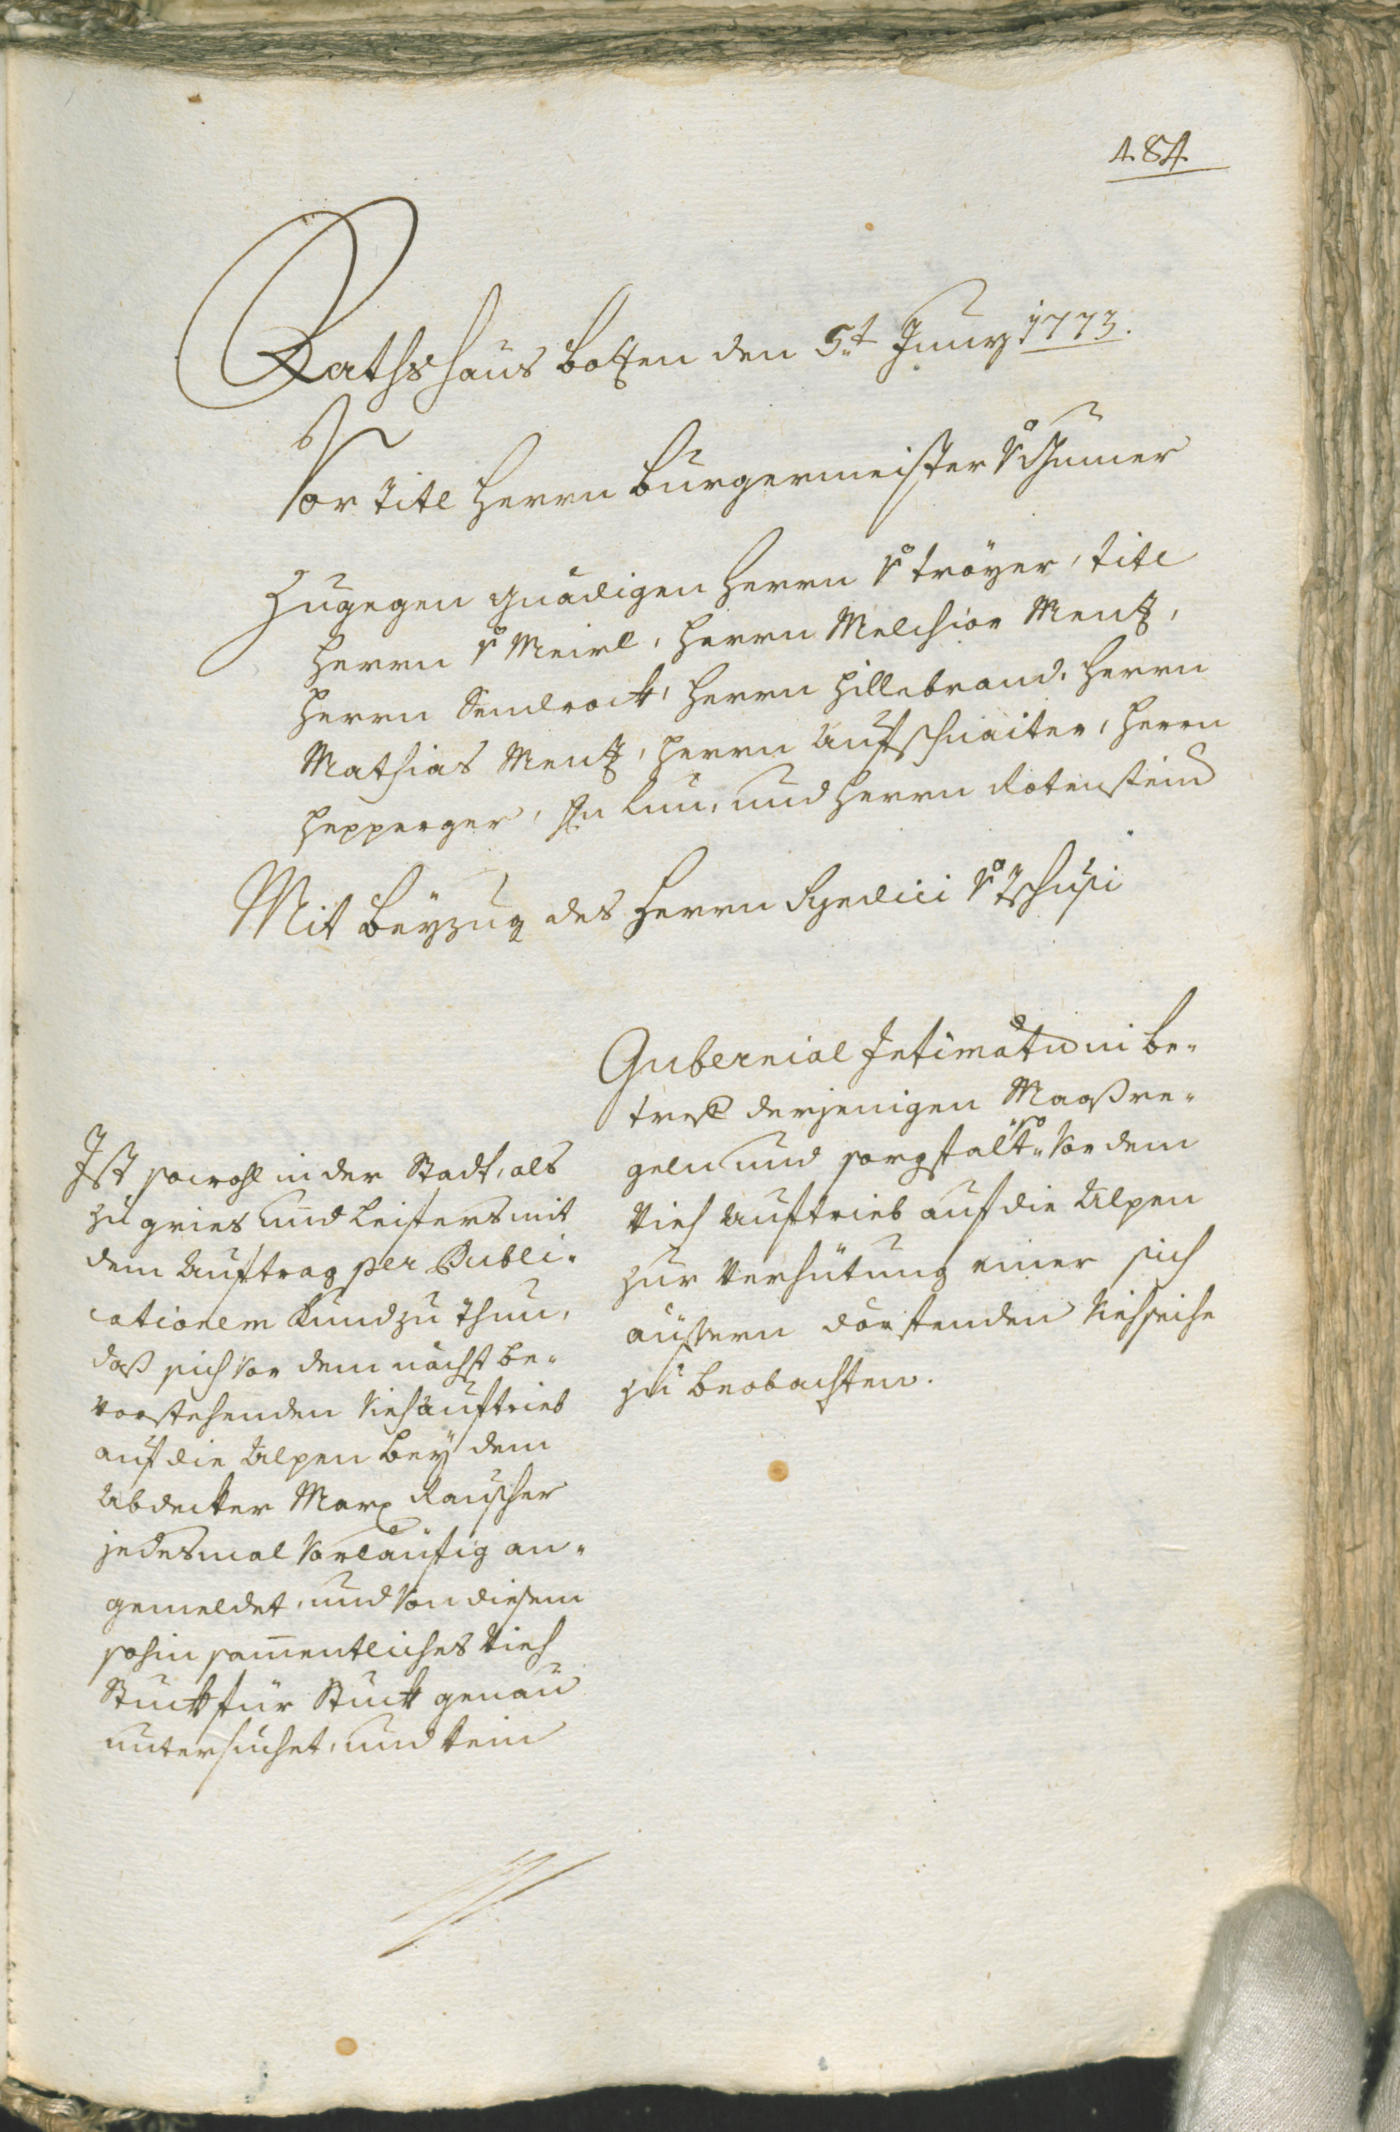 484.
Rathshaus botzen den 5.t Juny 1773.
Vor Titl Herrn burgermeister v: Gumer
Zugegen gnädigen Herrn v: Tröyer, Titl
Herrn v: Meirl, Herrn Melchior Mentz,
Herrn Sendrock, Herrn Hillebrand, Herrn
Mathias Mentz, Herrn Aufschnaiter, Herrn
Hepperger, Hn Lun, und Herrn Rotensteiner
Mit beyzug des Herrn Syndici v: Tschusi
Gubernial Intimatum be-
tref derjenigen Maaßre-
geln und sorgfalt, so vor dem
Vieh Auftrieb auf die Alpen
zur Verhütung einer sich
äussern dörftenden Viehseihe
zu beobachten.
Ist sowohl in der Stadt, als
zu gries und Leifers mit
dem Auftrag per Publi-
cationem kund zu thun,
daß sich vor dem nächst be-
vorstehenden Viehauftrieb
auf die Alpen bey dem
Abdecker Marx Rauscher
jedesmal vorläufig an-
gemeldet, und von diesem
sohin sam̄entliches Vieh
Stuck für Stuck genau
untersuchet, und kein